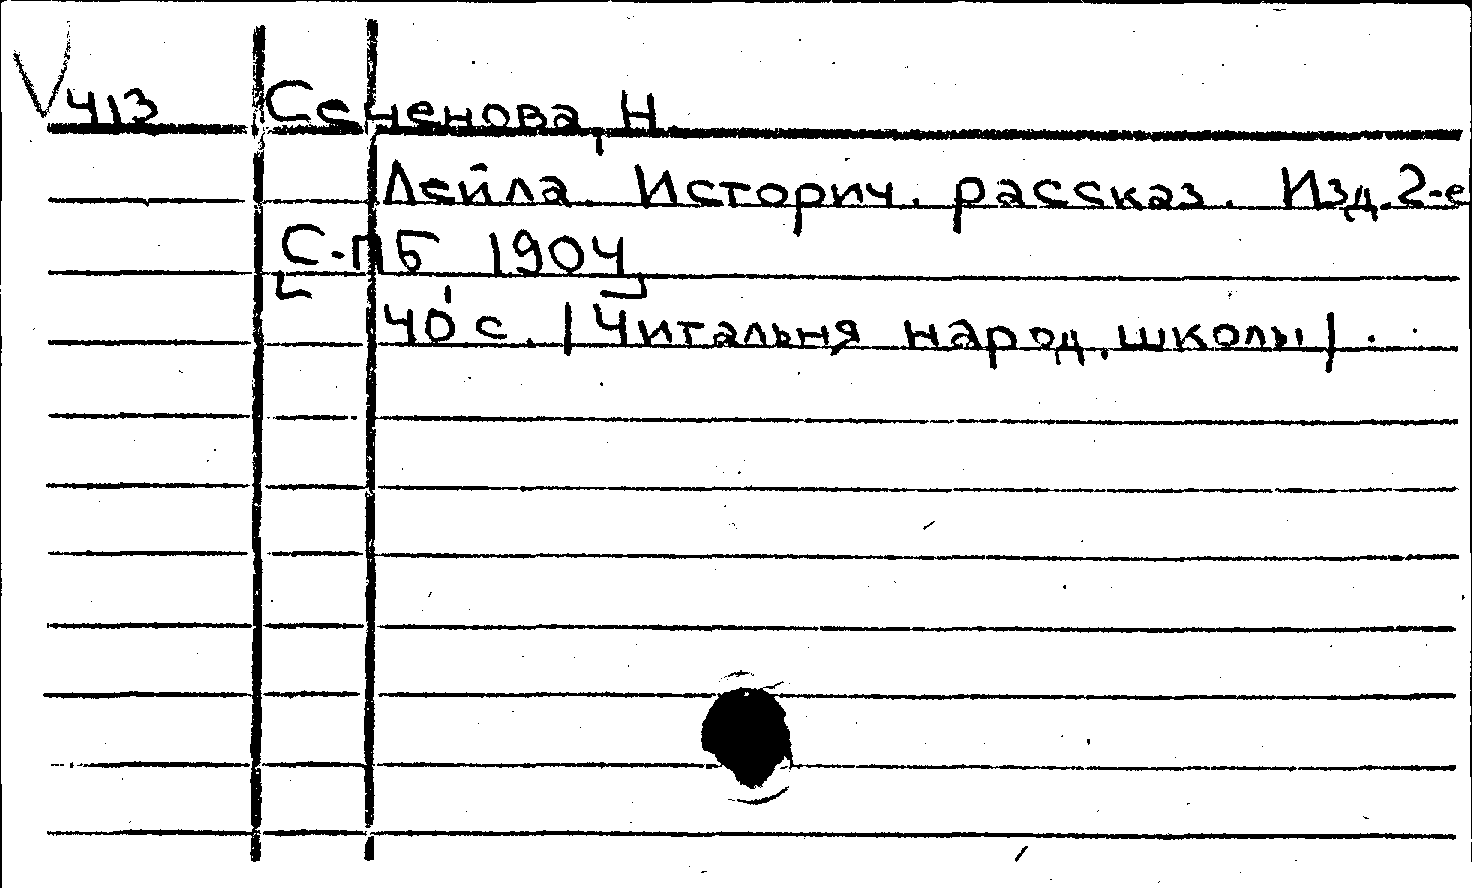 √ 413 Сеченова, Н.
Лейла. Историч. рассказ. Изд. 2-е
С.-ПБ 1904
40 с. /Читальня народ. школы/.